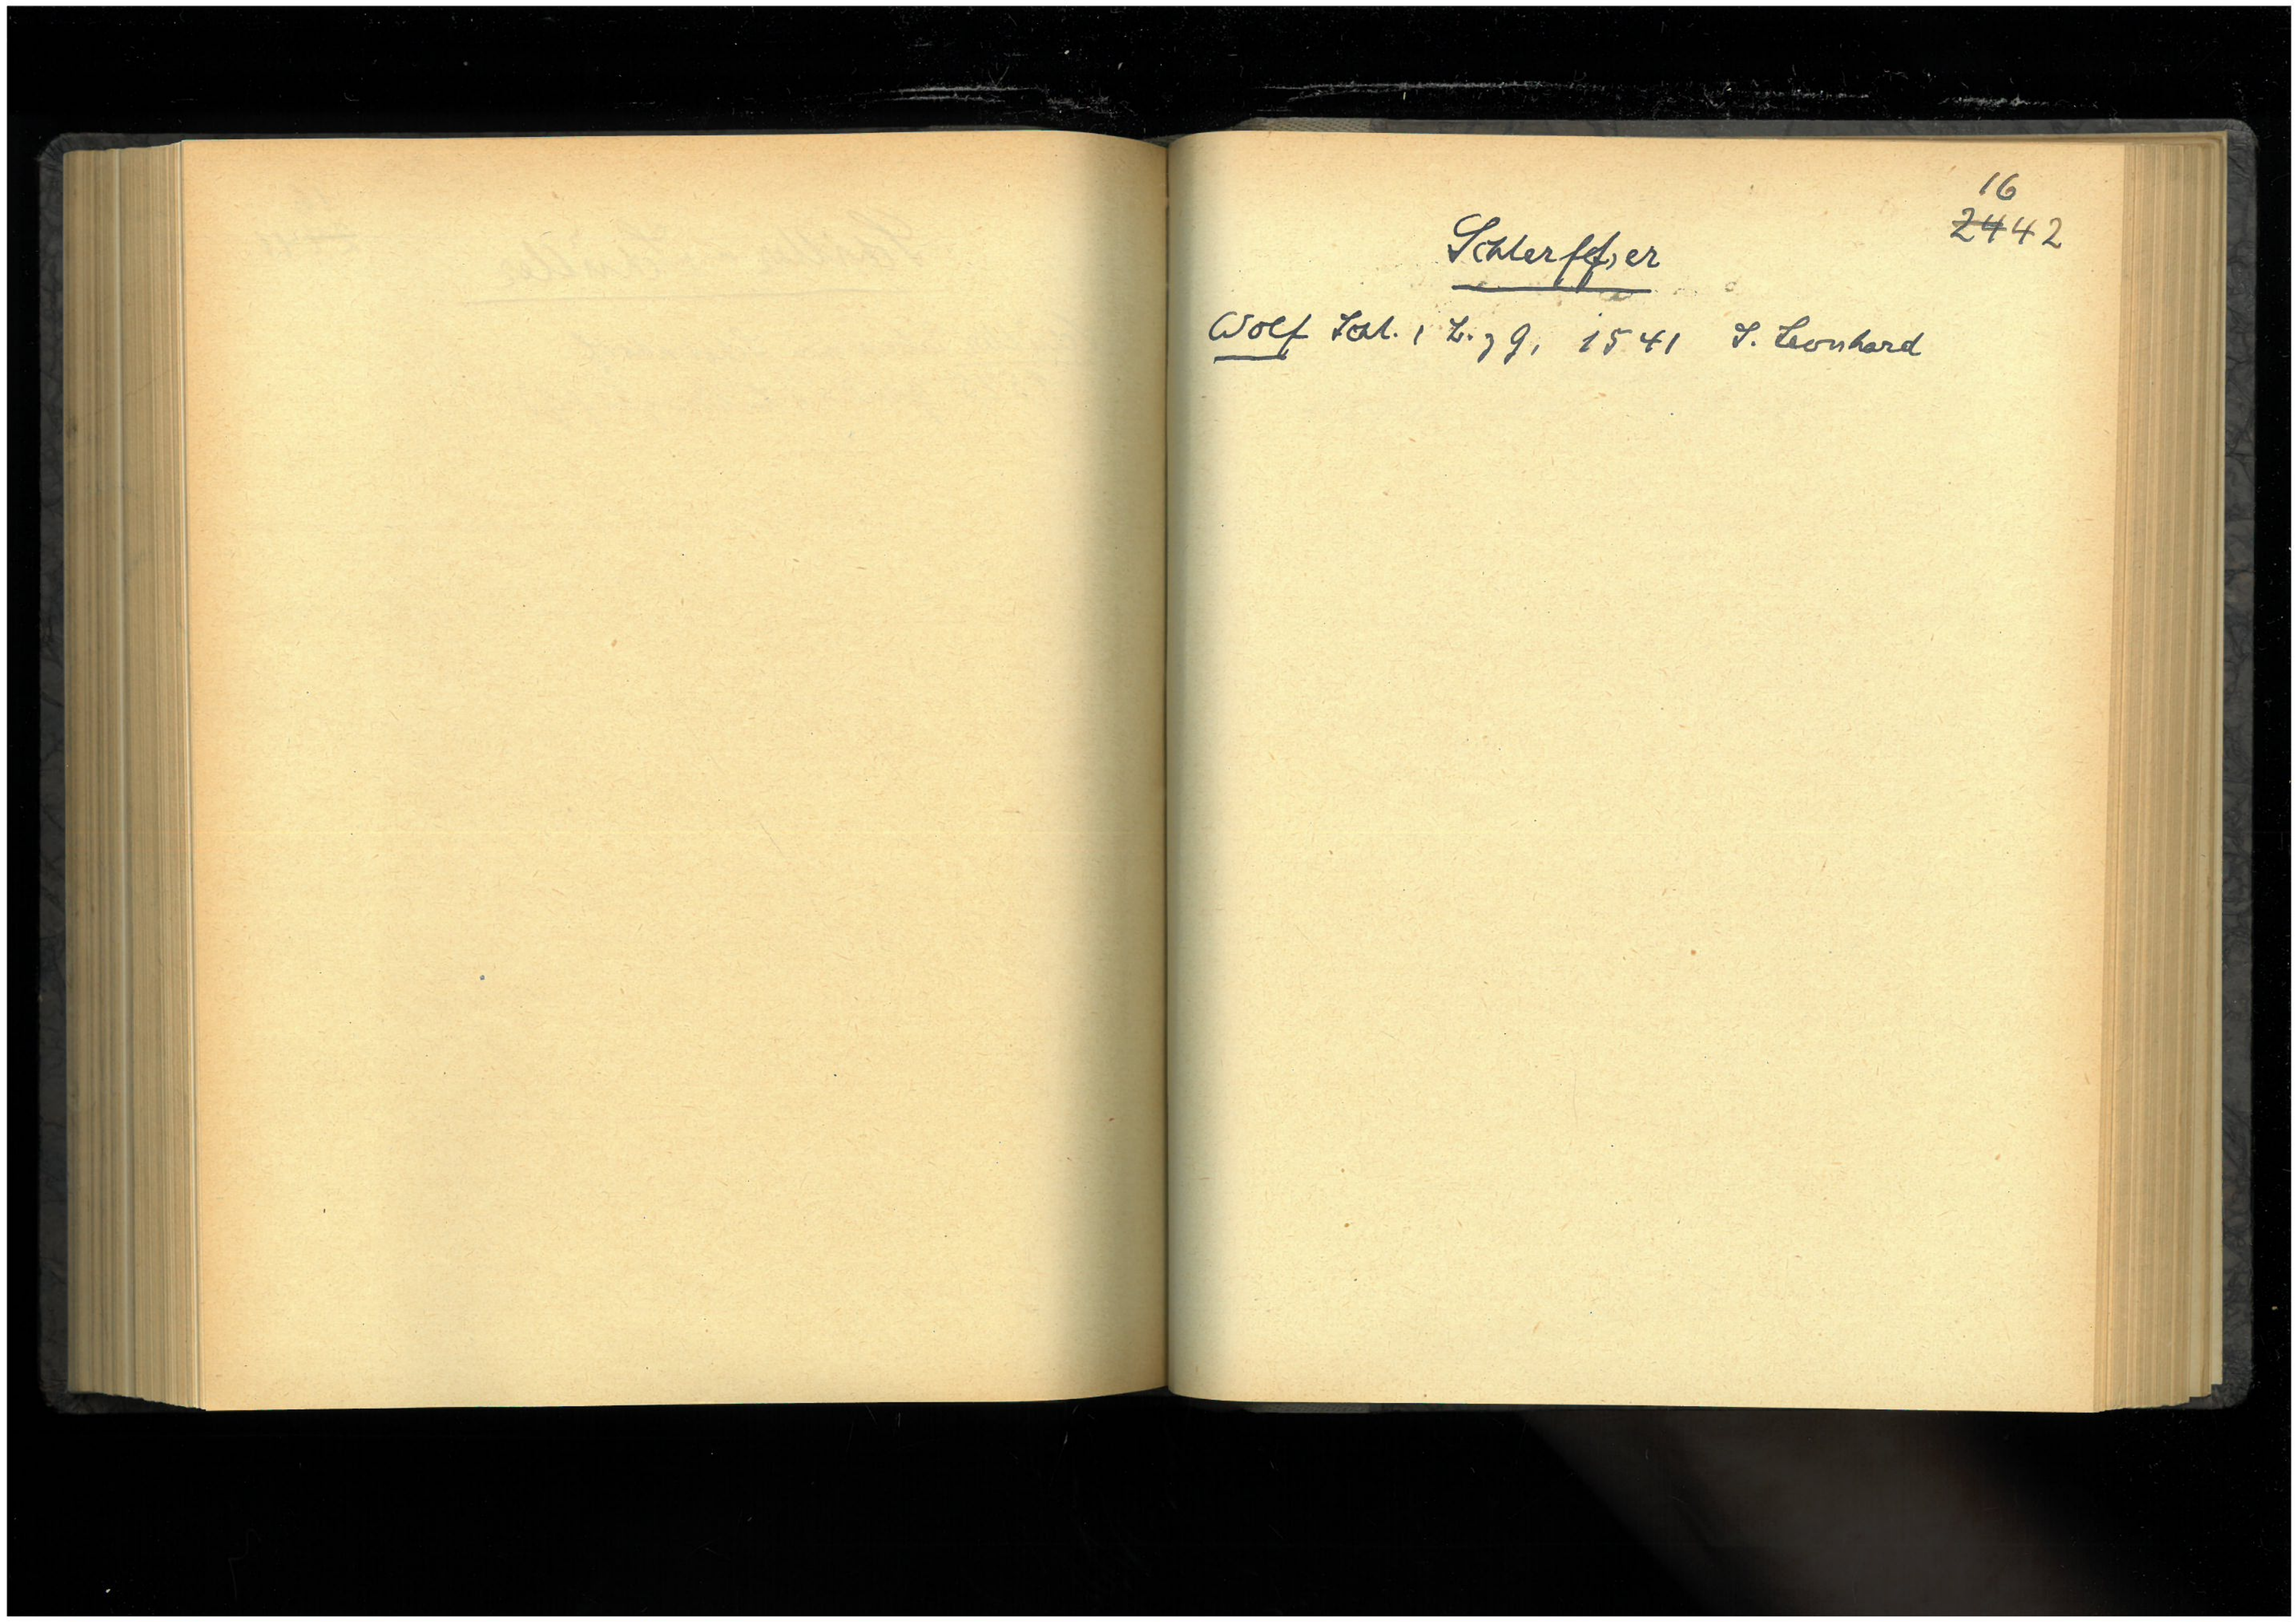 16
2442
Schlerff,er
Wolf Schl., L. z g, 1541 S. Leonhard